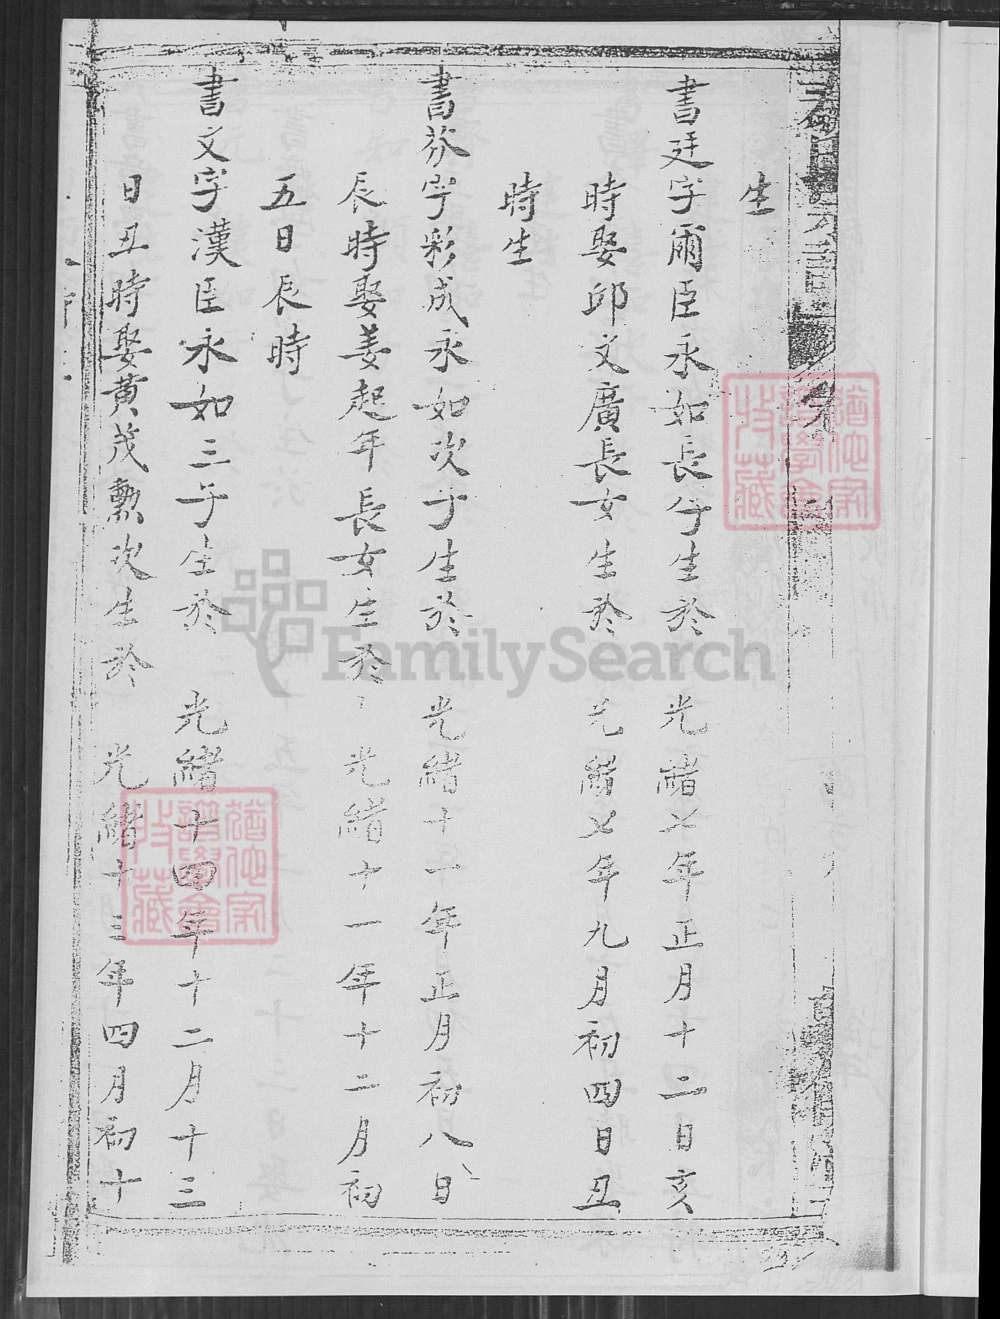 生
書廷字爾臣永如長子生於 光緒七年正月十二日亥
時娶邱文廣長女生於 光緒七年九月初四日丑
時生
書芬字彩成永如次子生於 光緒十一年正月初八日
辰時娶姜起年長女生於 光緒十一年十二月初
五日辰時
書文字漢臣永如三子生於 光緒十四年十二月十三
日丑時娶黃茂勲次生於 光緒十三年四月初十
FamilySearch
譜學會
收藏
譜學會
收藏